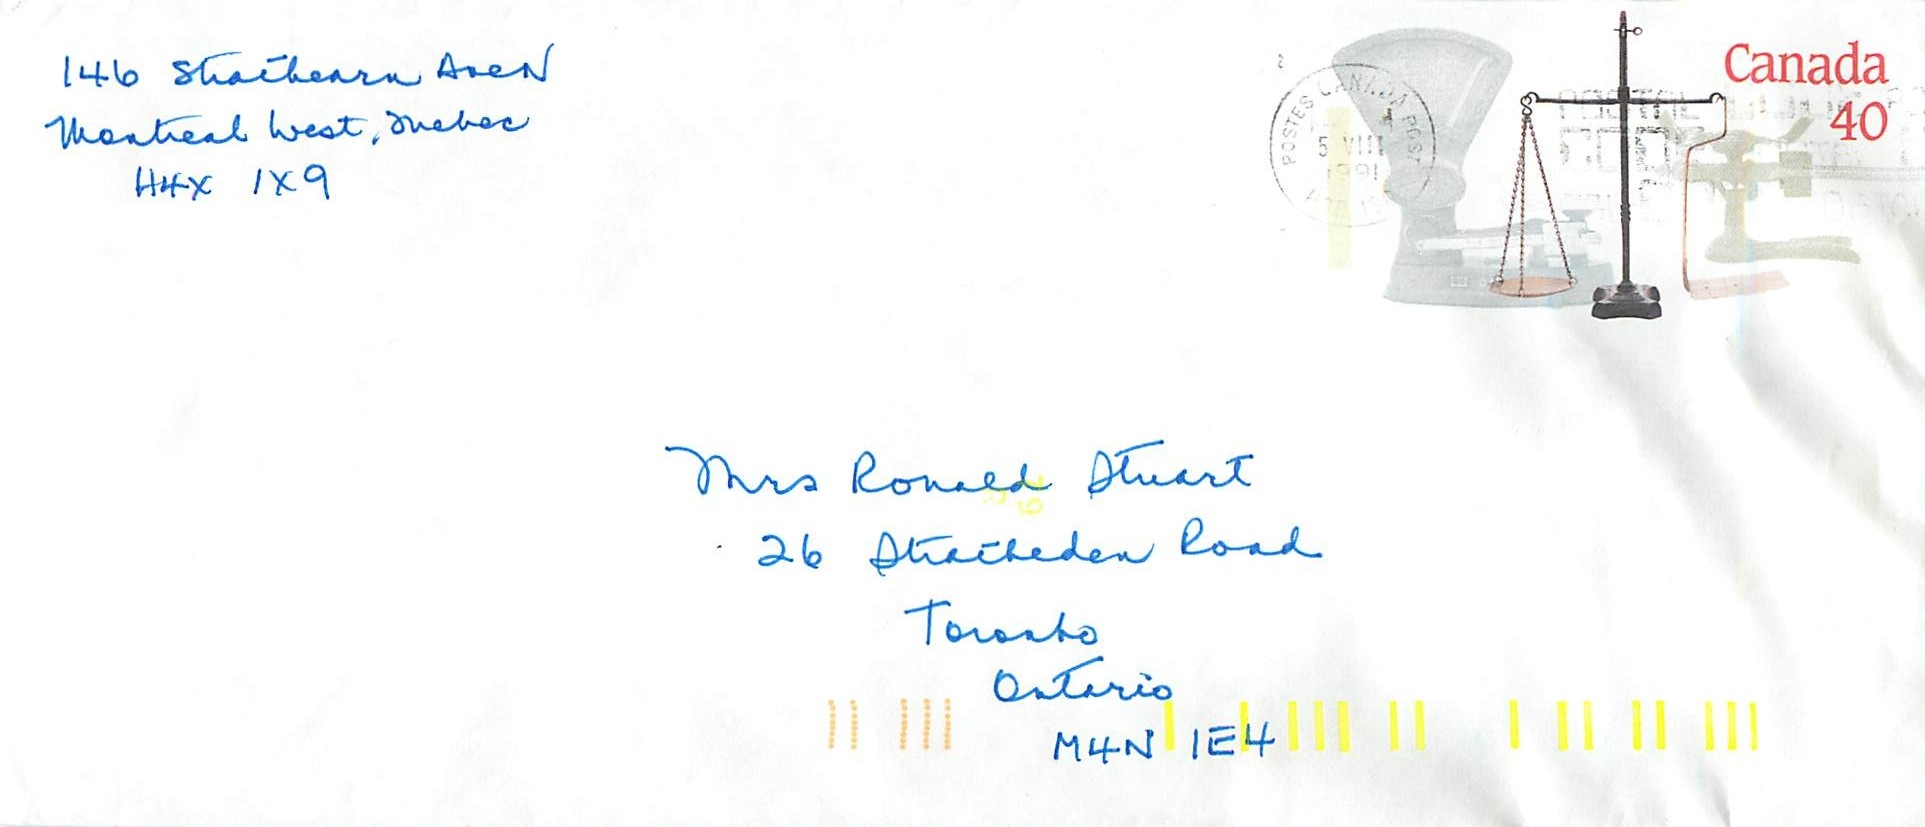 146 Strathearn Ave N
Montreal West, Quebec
H4X 1X9
POSTES CANADA POST
5 VIII
1991
Canada
40
POSTAL
CODE
Mrs Ronald Stuart
26 Stratheden Road
Toronto
Ontario
M4N 1E4